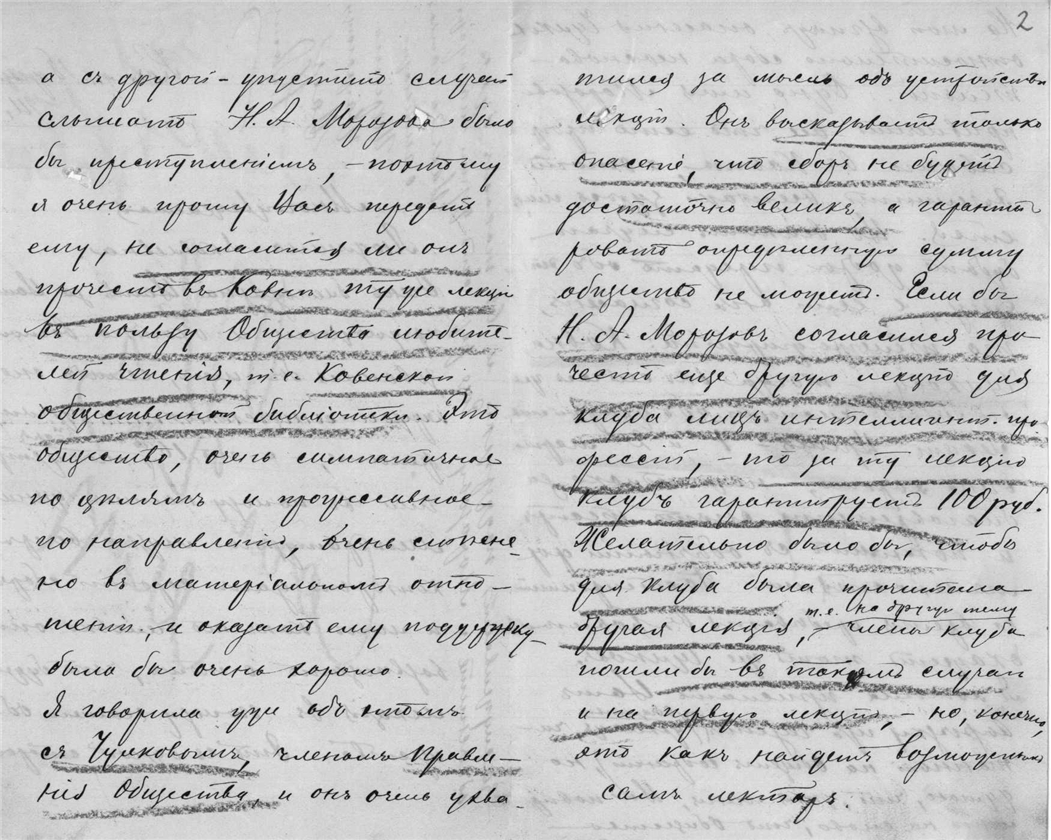 2
а съ другой – упустить случай
слышать Н. А. Морозова было
бы преступленіемъ, – поэтому
я очень прошу Васъ передать
ему, не согласится ли онъ
прочесть въ Ковнѣ ту же лекцію
въ пользу Общества любите-
лей чтенія, т. е. Ковенской
общественной библіотеки. Это
общество, очень симпатичное
по цѣлямъ и прогрессивное
по направленію, очень стѣсне-
но въ матеріальномъ отно-
шеніи, и оказать ему поддержку
было бы очень хорошо.
Я говорила уже объ этомъ
съ Чулковымъ, членомъ Правле-
нія Общества, и онъ очень ухва-
тился за мысль объ устройствѣ
лекціи. Онъ высказываетъ только
опасеніе, что сборъ не будетъ
достаточно великъ, а гаранти
ровать опредѣленную сумму
общество не можетъ. Если бы
Н. А. Морозовъ согласился про-
честь еще другую лекцію для
клуба лицъ интеллигент. про
фессій, – то за ту лекцію
клубъ гарантируетъ 100 руб.
Желательно было бы, чтобы
для клуба была прочитана
т. е. на другую тему
другая лекція, – члены клуба
пошли бы въ такомъ случаѣ
и на первую лекцію, – но, конечно,
это какъ найдетъ возможнымъ
самъ лекторъ.